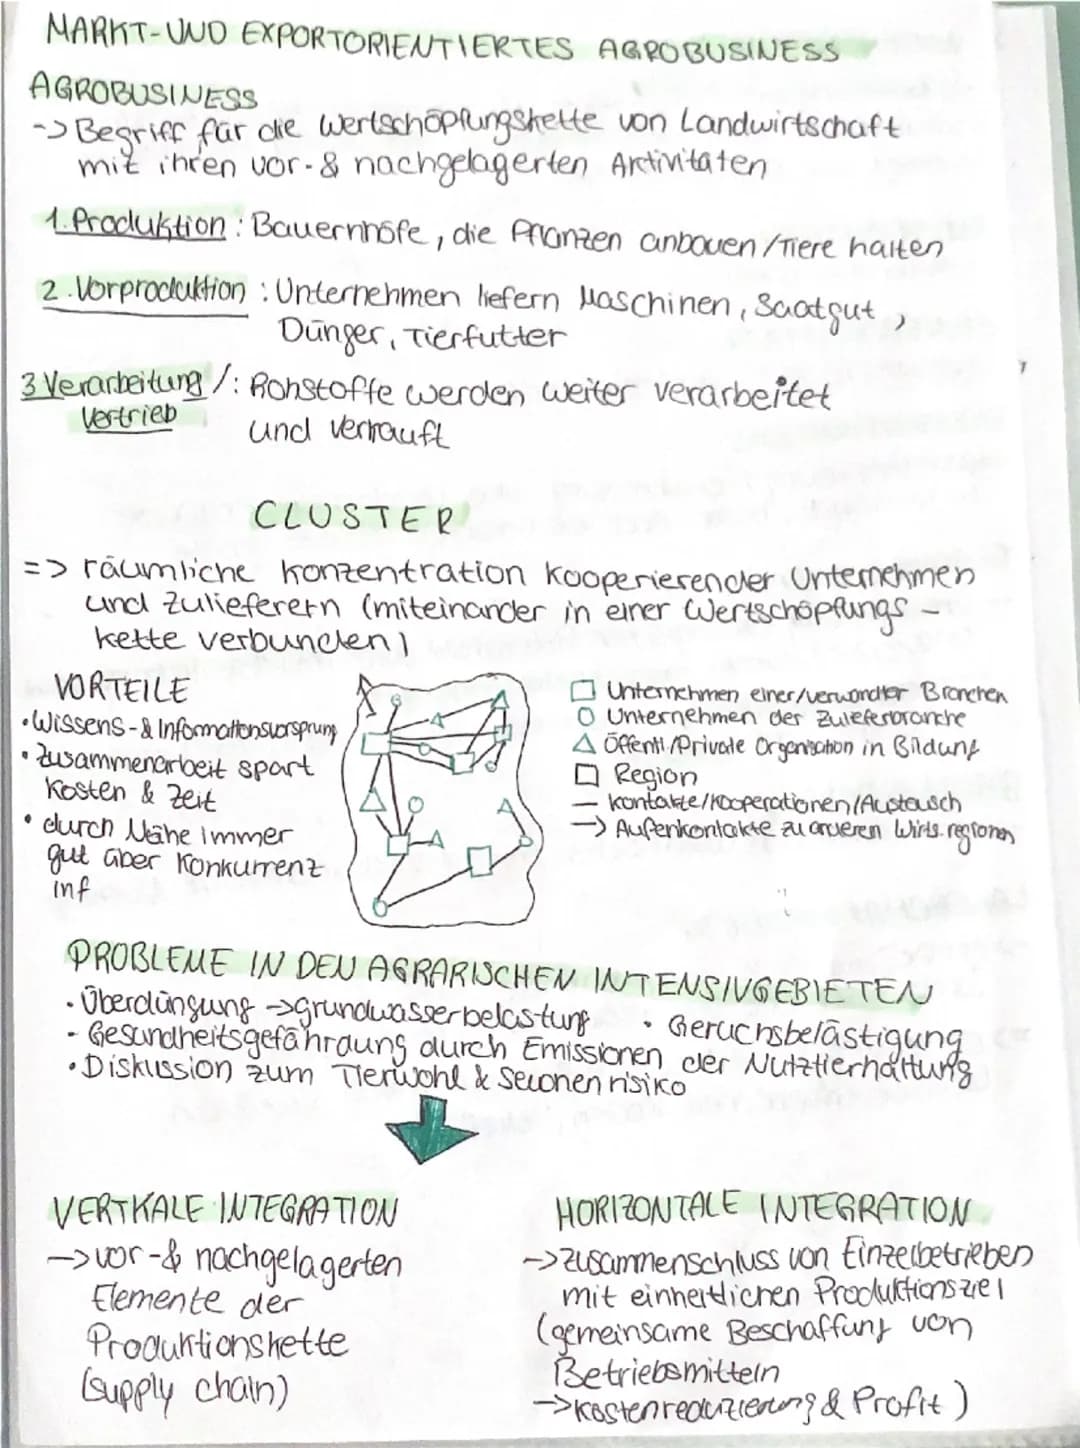 MARKT-UND EXPORTORIENTIERTES AGROBUSINESS
AGROBUSINESS
-> Begriff für die Wertschöpfungskette von Landwirtschaft
mit ihren vor-& nachgelagerten Aktivitäten
1. Produktion : Bauernhöfe, die Pflanzen anbauen/Tiere halten
2. Vorproduktion : Unternehmen liefern Maschinen, Saatgut,
Dünger, Tierfutter
3 Verarbeitung /: Rohstoffe werden weiter verarbeitet
Vertrieb und verkauft
CLUSTER
=> räumliche Konzentration kooperierender Unternehmen
und Zulieferern (miteinander in einer Wertschöpfungs-
kette verbunden)
VORTEILE
• Wissens-& Informationsvorsprung
• Zusammenarbeit spart
Kosten & Zeit
• durch Nähe immer
gut über Konkurrenz
inf
Unternehmen einer/verwandter Branchen
Unternehmen der Zulieferbranche
Öffentl./Private Organisation in Bildung
Region
— Kontakte/Kooperationen/Austausch
-> Außenkontakte zu anderen Wirts.regionen
PROBLEME IN DEN AGRARISCHEN INTENSIVGEBIETEN
• Überdüngung -> Grundwasserbelastung • Geruchsbelästigung
- Gesundheitsgefährdung durch Emissionen der Nutztierhaltung
• Diskussion zum Tierwohl & Seuchenrisiko
VERTKALE INTEGRATION
-> vor-& nachgelagerten
Elemente der
Produktionskette
(supply chain)
HORIZONTALE INTEGRATION
-> Zusammenschluss von Einzelbetrieben
mit einheitlichen Produktionsziel
(gemeinsame Beschaffung von
Betriebsmitteln
-> Kostenreduzierung & Profit)